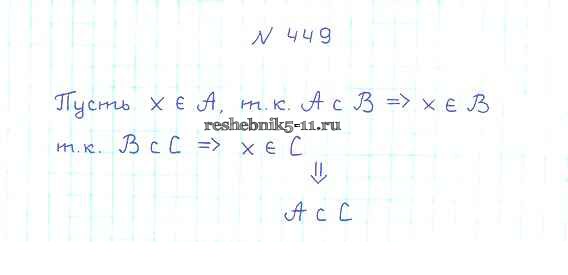 N 449
Пусть x ∈ A, т.к. A ⊂ B => x ∈ B
reshebnik5-11.ru
т.к. B ⊂ C => x ∈ C
⇓
A ⊂ C